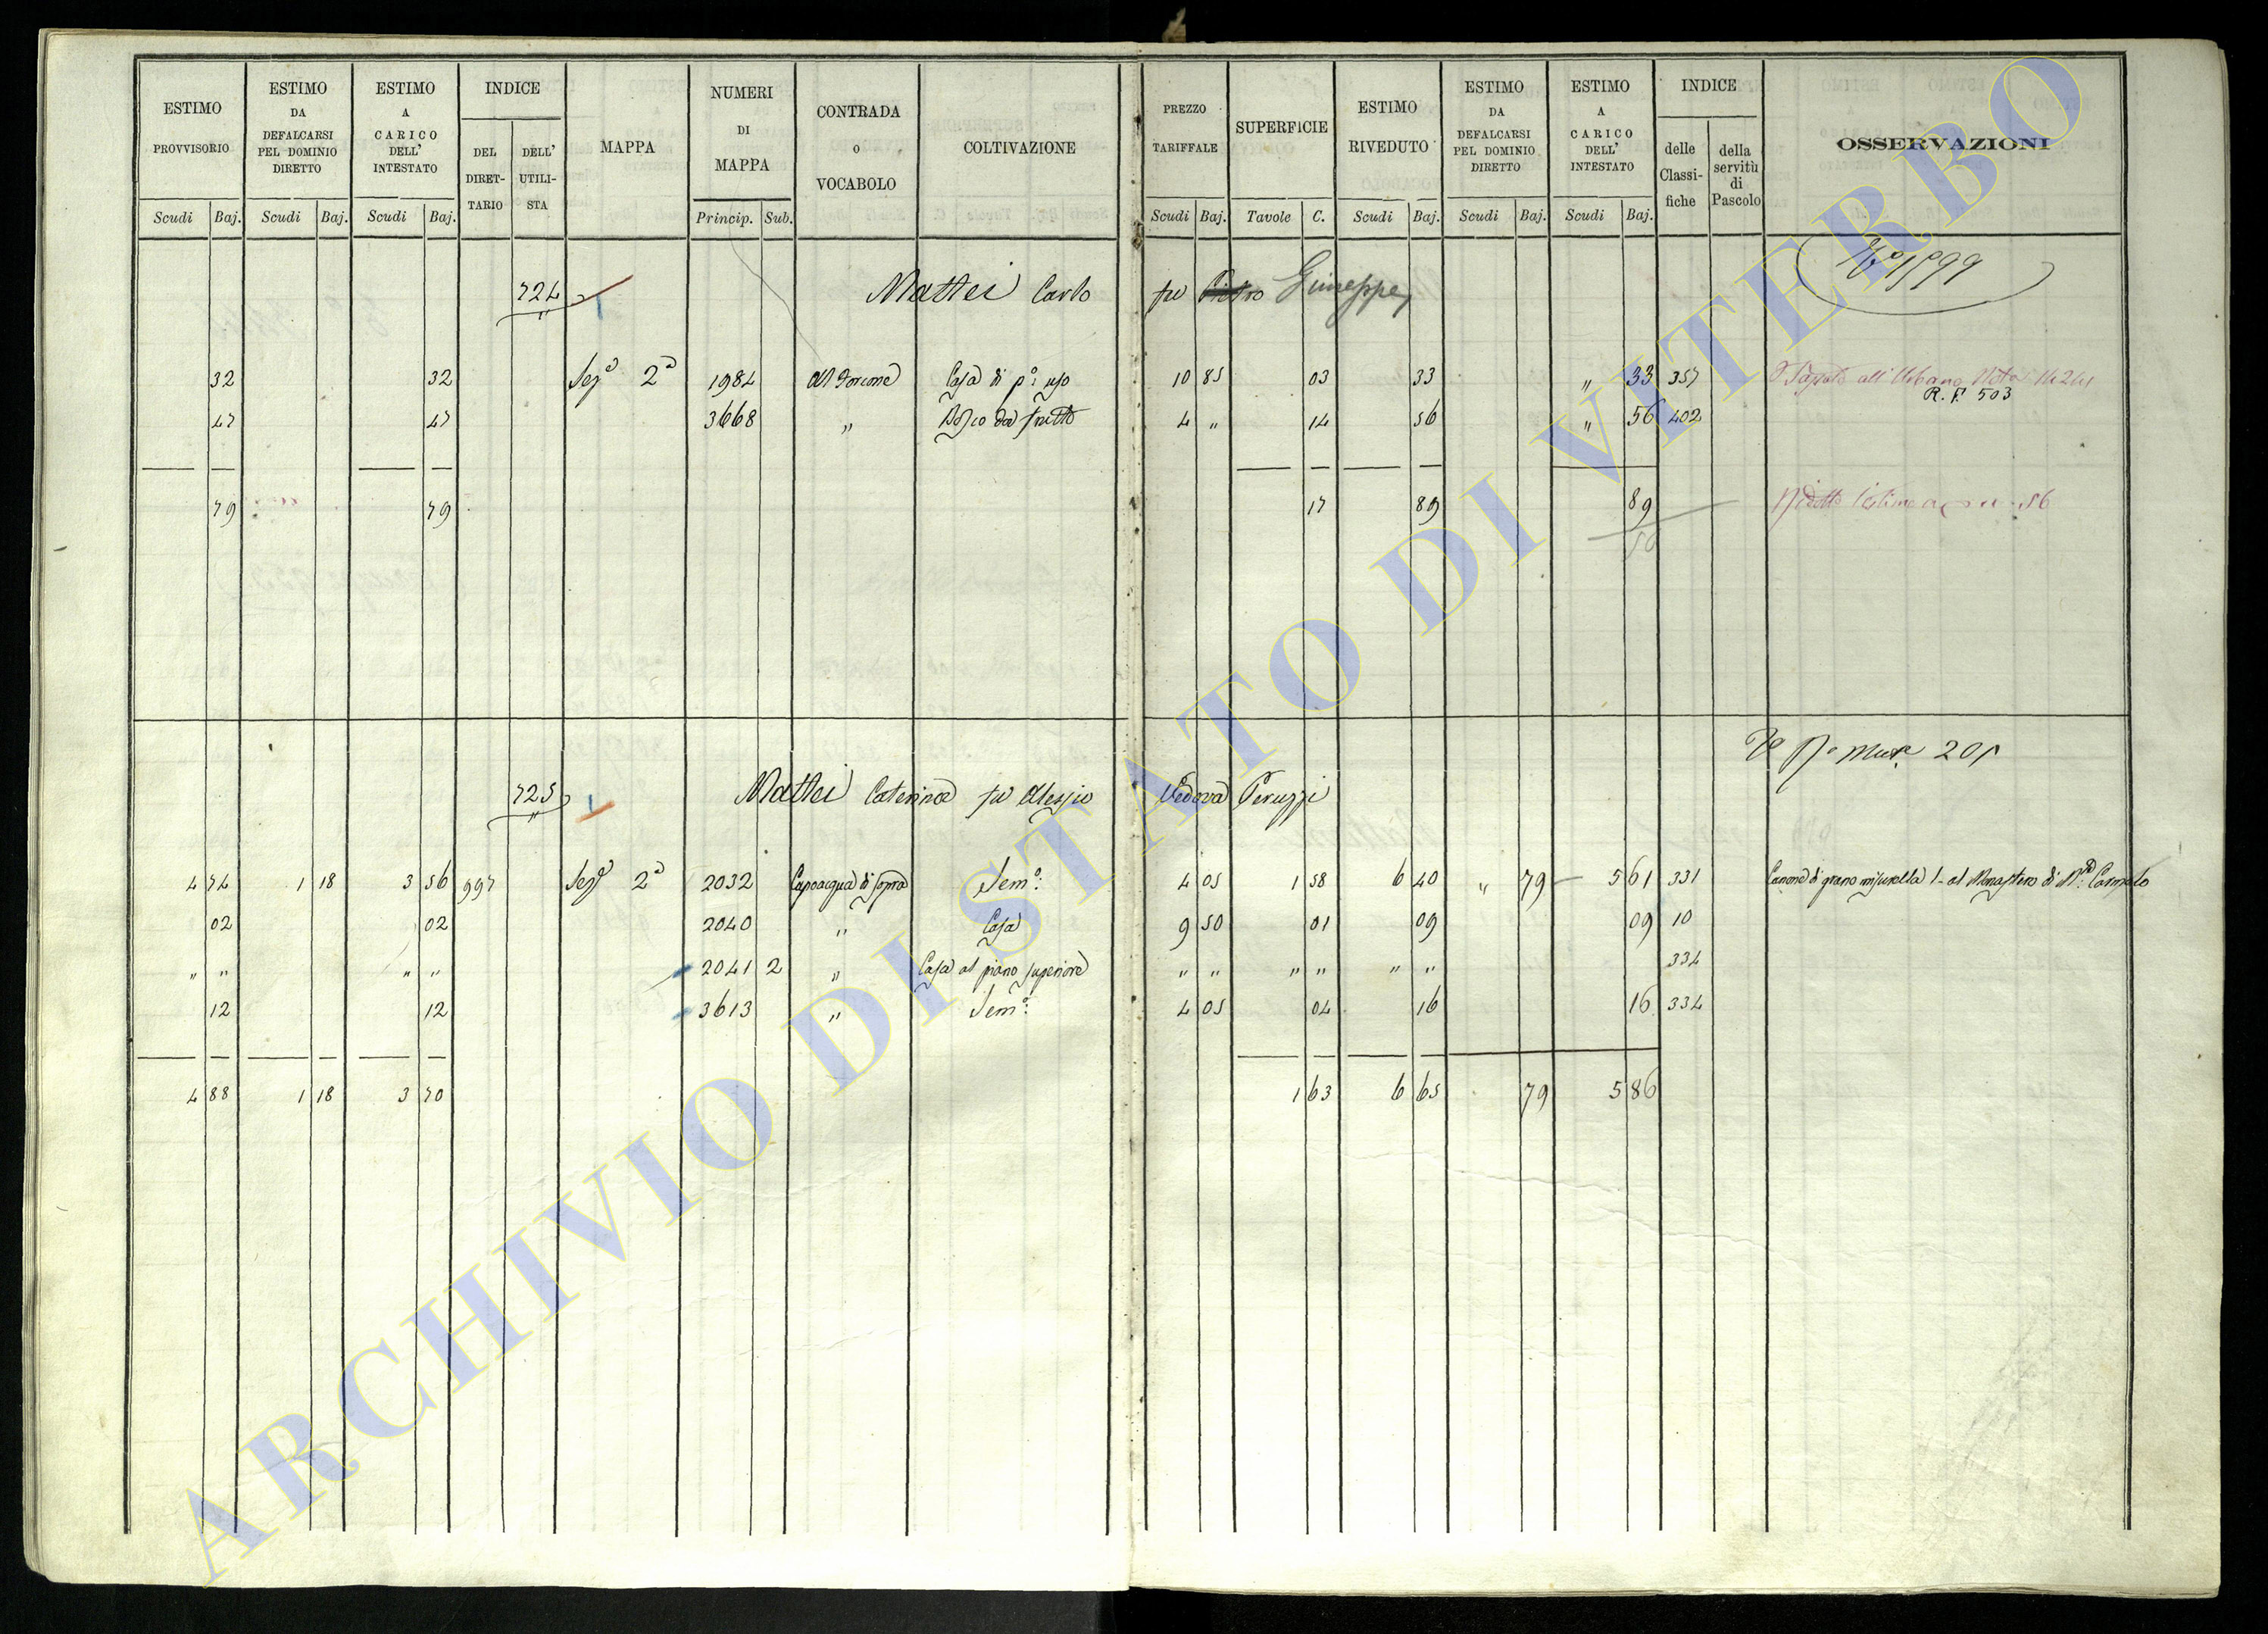 ESTIMO PROVVISORIO
ESTIMO DA DEFALCARSI PEL DOMINIO DIRETTO
ESTIMO A CARICO DELL' INTESTATO
INDICE
DEL DIRET-TARIO
DELL' UTILI-STA
MAPPA
NUMERI DI MAPPA
CONTRADA o VOCABOLO
COLTIVAZIONE
PREZZO TARIFFALE
SUPERFICIE
ESTIMO RIVEDUTO
ESTIMO DA DEFALCARSI PEL DOMINIO DIRETTO
ESTIMO A CARICO DELL' INTESTATO
INDICE
delle Classi-fiche
della servitù di Pascolo
OSSERVAZIONI
Scudi Baj. Scudi Baj. Scudi Baj. Princip. Sub. Scudi Baj. Tavole C. Scudi Baj. Scudi Baj. Scudi Baj.
724 Mattei Carlo fu Pietro Giuseppe
32 32 Seze 2a 1984 Casa di po: uso 10 85 03 33 " 33 357
R. F. 503
47 47 3668 " Bosco da frutto 4 " 14 56 " 56 402
79 79 17 89 89
56
725 Mattei Caterina fu Alessio Vedova Peruzzi
4 74 1 18 3 56 997 Seze 2a 2032 Capoacqua di sopra Semo: 4 05 1 58 6 40 " 79 5 61 331 Canone di grano misurella 1- al Monastero di Carmelo
02 02 2040 " Casa 9 50 01 09 09 10
" " " " 2041 2 " Casa al piano superiore " " " " " " 334
12 12 3613 " Semo: 4 05 04 16 16 334
4 88 1 18 3 70 1 63 6 65 79 5 86
ARCHIVIO DI STATO DI VITERBO